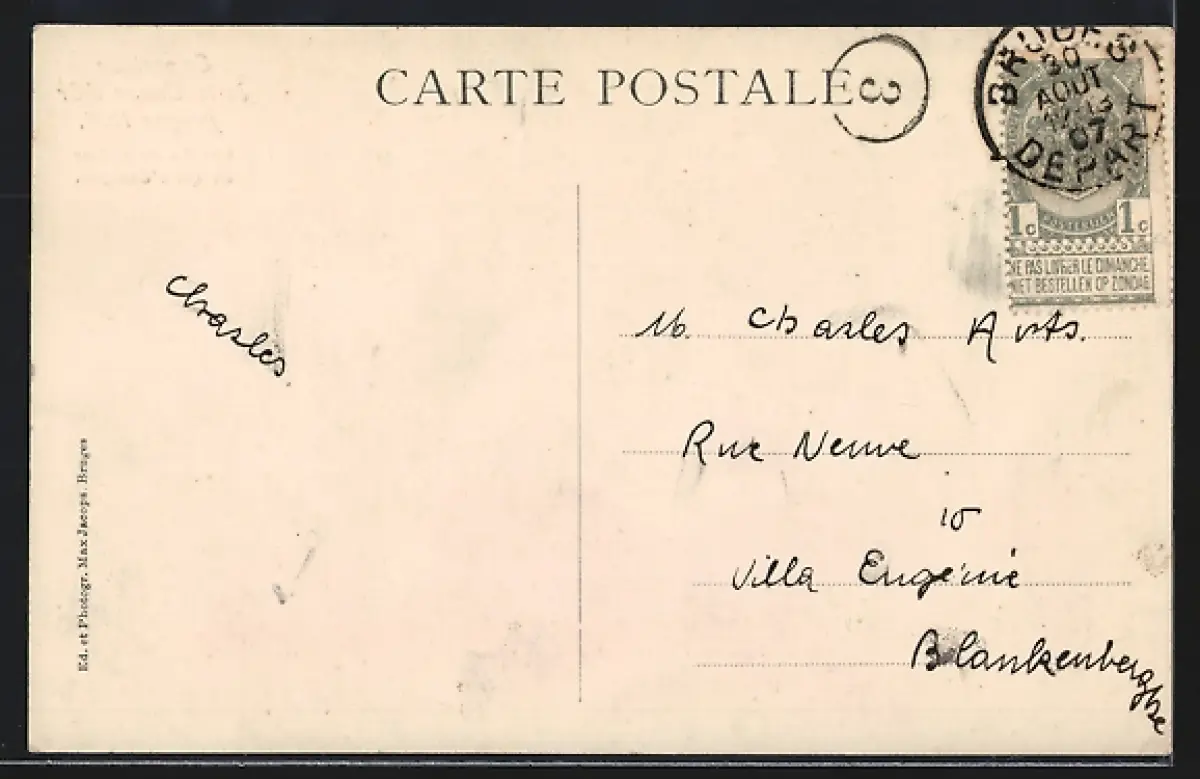 CARTE POSTALE
3
BRUGES
30
AOUT
12-13
07
DEPART
1c 1c
NE PAS LIVRER LE DIMANCHE
NIET BESTELLEN OP ZONDAG
Charles
M. Charles Arts.
Rue Neuve
10
Villa Eugénie
Blankenberghe
Ed. et Photogr. Max Jacops. Bruges